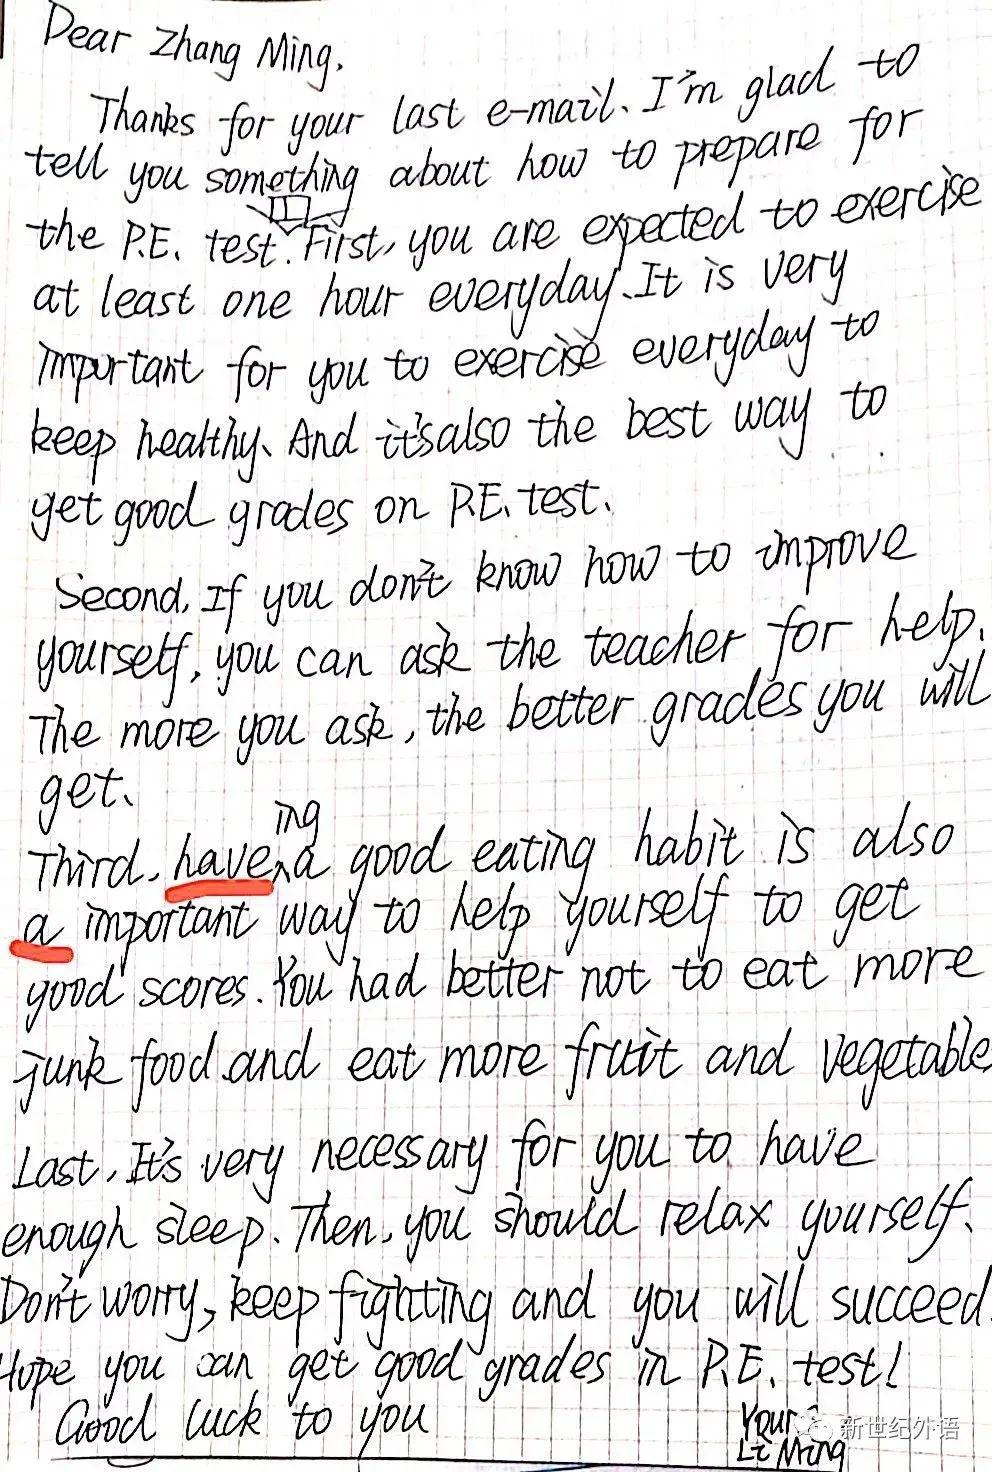 Dear Zhang Ming,
Thanks for your last e-mail. I'm glad to
tell you something about how to prepare for
the P.E. test. First, you are expected to exercise
at least one hour everyday. It is very
important for you to exercise everyday to
keep healthy. And it's also the best way to
get good grades on P.E. test.
Second, If you don't know how to improve
yourself, you can ask the teacher for help.
The more you ask, the better grades you will
get.
ing
Third, have a good eating habit is also
a important way to help yourself to get
good scores. You had better not to eat more
junk food and eat more fruit and vegetable
Last, It's very necessary for you to have
enough sleep. Then, you should relax yourself.
Don't worry, keep fighting and you will succeed.
Hope you can get good grades in P.E. test!
Good luck to you
Your
新世纪外语
Li Ming